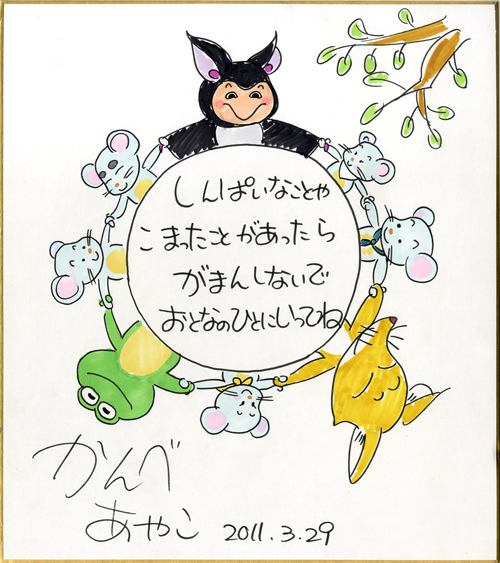 しんぱいなことや
こまったことがあったら
がまんしないで
おとなのひとにいってね
かんべ
あやこ 2011.3.29